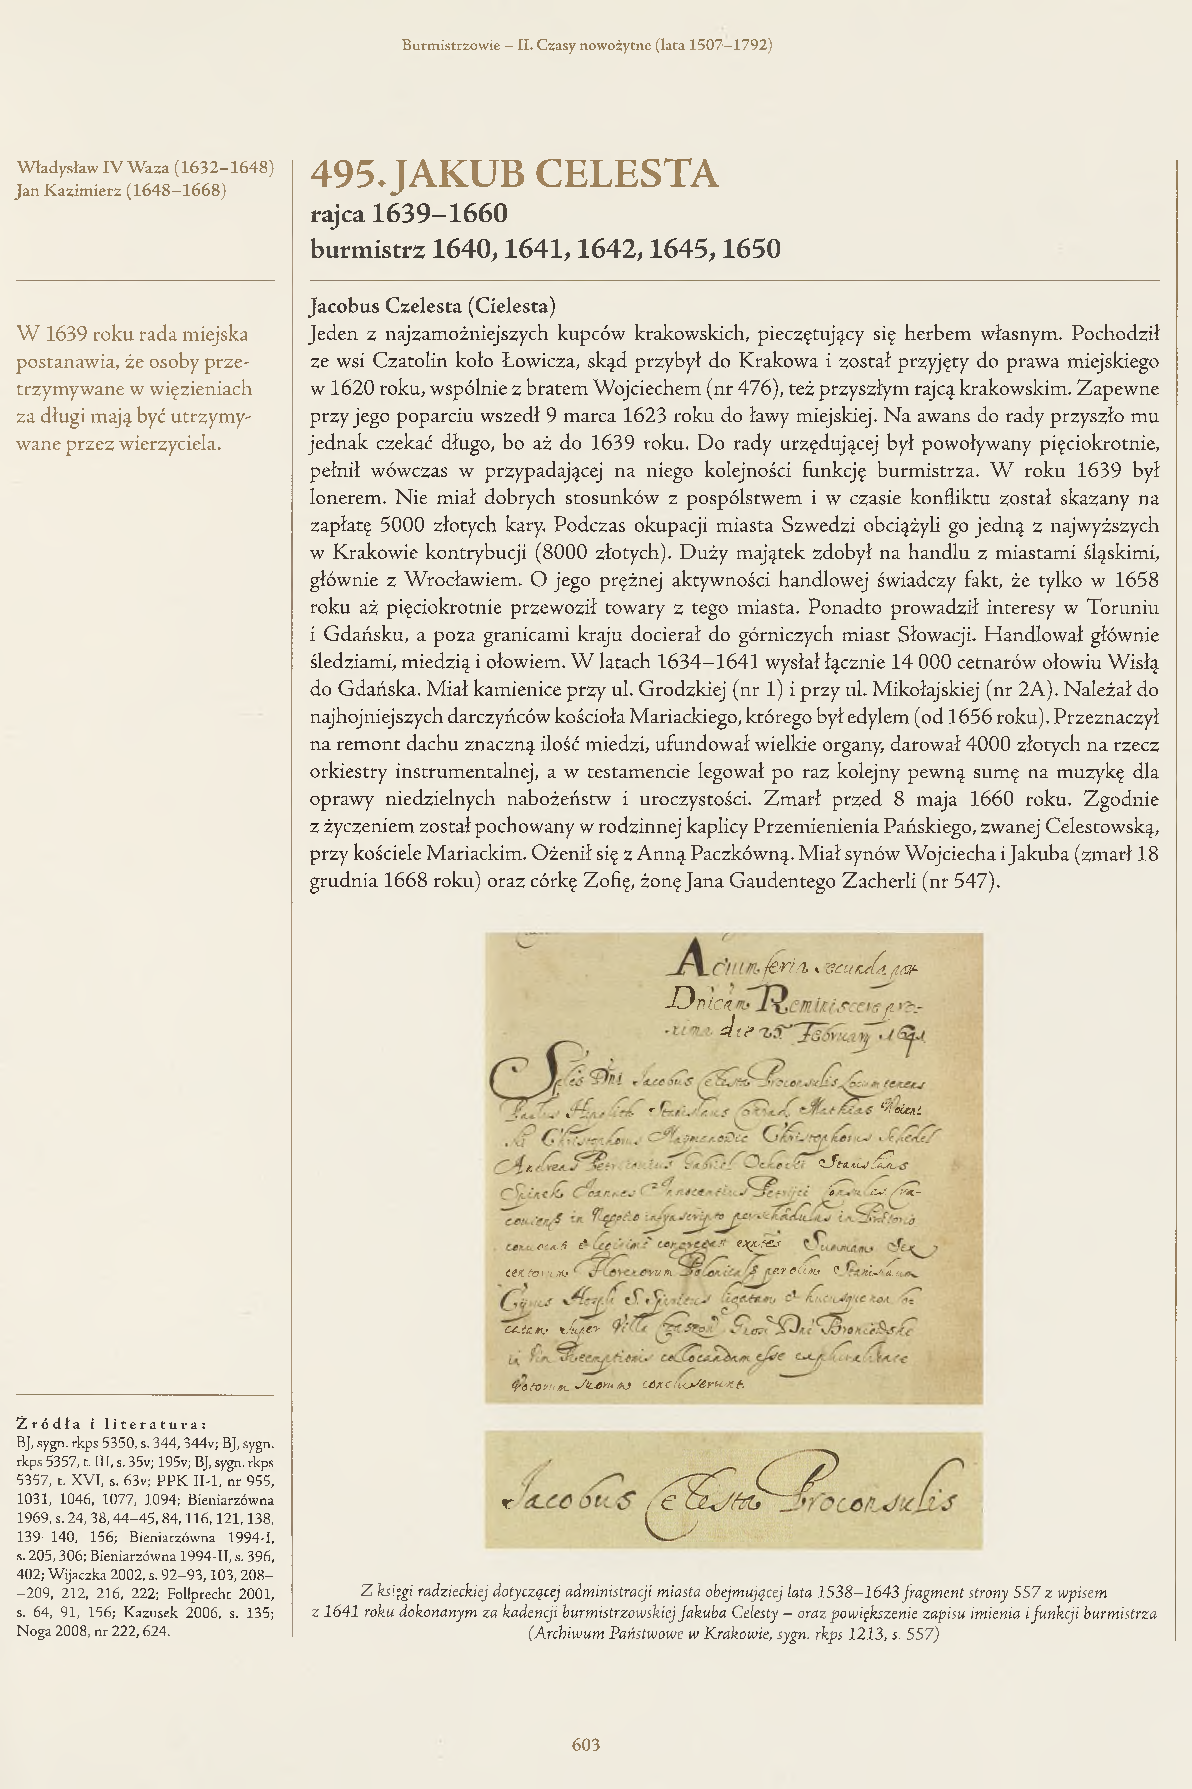 Burmistrzowie – II. Czasy nowożytne (lata 1507–1792)
Władysław IV Waza (1632–1648)
Jan Kazimierz (1648–1668)
W 1639 roku rada miejska
postanawia, że osoby prze-
trzymywane w więzieniach
za długi mają być utrzymy-
wane przez wierzyciela.
495. JAKUB CELESTA
rajca 1639–1660
burmistrz 1640, 1641, 1642, 1645, 1650
Jacobus Czelesta (Cielesta)
Jeden z najzamożniejszych kupców krakowskich, pieczętujący się herbem własnym. Pochodził
ze wsi Czatolin koło Łowicza, skąd przybył do Krakowa i został przyjęty do prawa miejskiego
w 1620 roku, wspólnie z bratem Wojciechem (nr 476), też przyszłym rajcą krakowskim. Zapewne
przy jego poparciu wszedł 9 marca 1623 roku do ławy miejskiej. Na awans do rady przyszło mu
jednak czekać długo, bo aż do 1639 roku. Do rady urzędującej był powoływany pięciokrotnie,
pełnił wówczas w przypadającej na niego kolejności funkcję burmistrza. W roku 1639 był
lonerem. Nie miał dobrych stosunków z pospólstwem i w czasie konfliktu został skazany na
zapłatę 5000 złotych kary. Podczas okupacji miasta Szwedzi obciążyli go jedną z najwyższych
w Krakowie kontrybucji (8000 złotych). Duży majątek zdobył na handlu z miastami śląskimi,
głównie z Wrocławiem. O jego prężnej aktywności handlowej świadczy fakt, że tylko w 1658
roku aż pięciokrotnie przewoził towary z tego miasta. Ponadto prowadził interesy w Toruniu
i Gdańsku, a poza granicami kraju docierał do górniczych miast Słowacji. Handlował głównie
śledziami, miedzią i ołowiem. W latach 1634–1641 wysłał łącznie 14 000 cetnarów ołowiu Wisłą
do Gdańska. Miał kamienice przy ul. Grodzkiej (nr 1) i przy ul. Mikołajskiej (nr 2A). Należał do
najhojniejszych darczyńców kościoła Mariackiego, którego był edylem (od 1656 roku). Przeznaczył
na remont dachu znaczną ilość miedzi, ufundował wielkie organy, darował 4000 złotych na rzecz
orkiestry instrumentalnej, a w testamencie legował po raz kolejny pewną sumę na muzykę dla
oprawy niedzielnych nabożeństw i uroczystości. Zmarł przed 8 maja 1660 roku. Zgodnie
z życzeniem został pochowany w rodzinnej kaplicy Przemienienia Pańskiego, zwanej Celestowską,
przy kościele Mariackim. Ożenił się z Anną Paczkówną. Miał synów Wojciecha i Jakuba (zmarł 18
grudnia 1668 roku) oraz córkę Zofię, żonę Jana Gaudentego Zacherli (nr 547).
Actum feria secunda post
Dnicam Reminiscere pro-
xima die 25 February 1641
Dni Jacobus Celesta Proconsulis Locum tenens
Paulus Hipolith Stanislaus Conrad Mathias
Christophorus Christophorus Schedel
Andreas Petricinius Gabriel Ochocki Stanislaus
Joannes Innocentius Petrijci Consules Cra-
infrascripto per schedulas in Prætorio
legitime congregati Summam Sex
centorum Florenorum per olim Stanislaum
Cyrus S. Spiritus ligatam & hucusque non lo-
catam super Villa
in Vim Reemptionis collocandam esse
Votorum suorum concluserunt.
Jacobus Celesta Proconsulis
Z księgi radzieckiej dotyczącej administracji miasta obejmującej lata 1538–1643 fragment strony 557 z wpisem
z 1641 roku dokonanym za kadencji burmistrzowskiej Jakuba Celesty – oraz powiększenie zapisu imienia i funkcji burmistrza
(Archiwum Państwowe w Krakowie, sygn. rkps 1213, s. 557)
Źródła i literatura:
BJ, sygn. rkps 5350, s. 344, 344v; BJ, sygn.
rkps 5357, t. III, s. 35v; 195v; BJ, sygn. rkps
5357, t. XVI, s. 63v; PPK II-1, nr 955,
1031, 1046, 1077, 1094; Bieniarzówna
1969, s. 24, 38, 44–45, 84, 116, 121, 138,
139–140, 156; Bieniarzówna 1994-I,
s. 205, 306; Bieniarzówna 1994-II, s. 396,
402; Wijaczka 2002, s. 92–93, 103, 208–
–209, 212, 216, 222; Follprecht 2001,
s. 64, 91, 156; Kazusek 2006, s. 135;
Noga 2008, nr 222, 624.
603